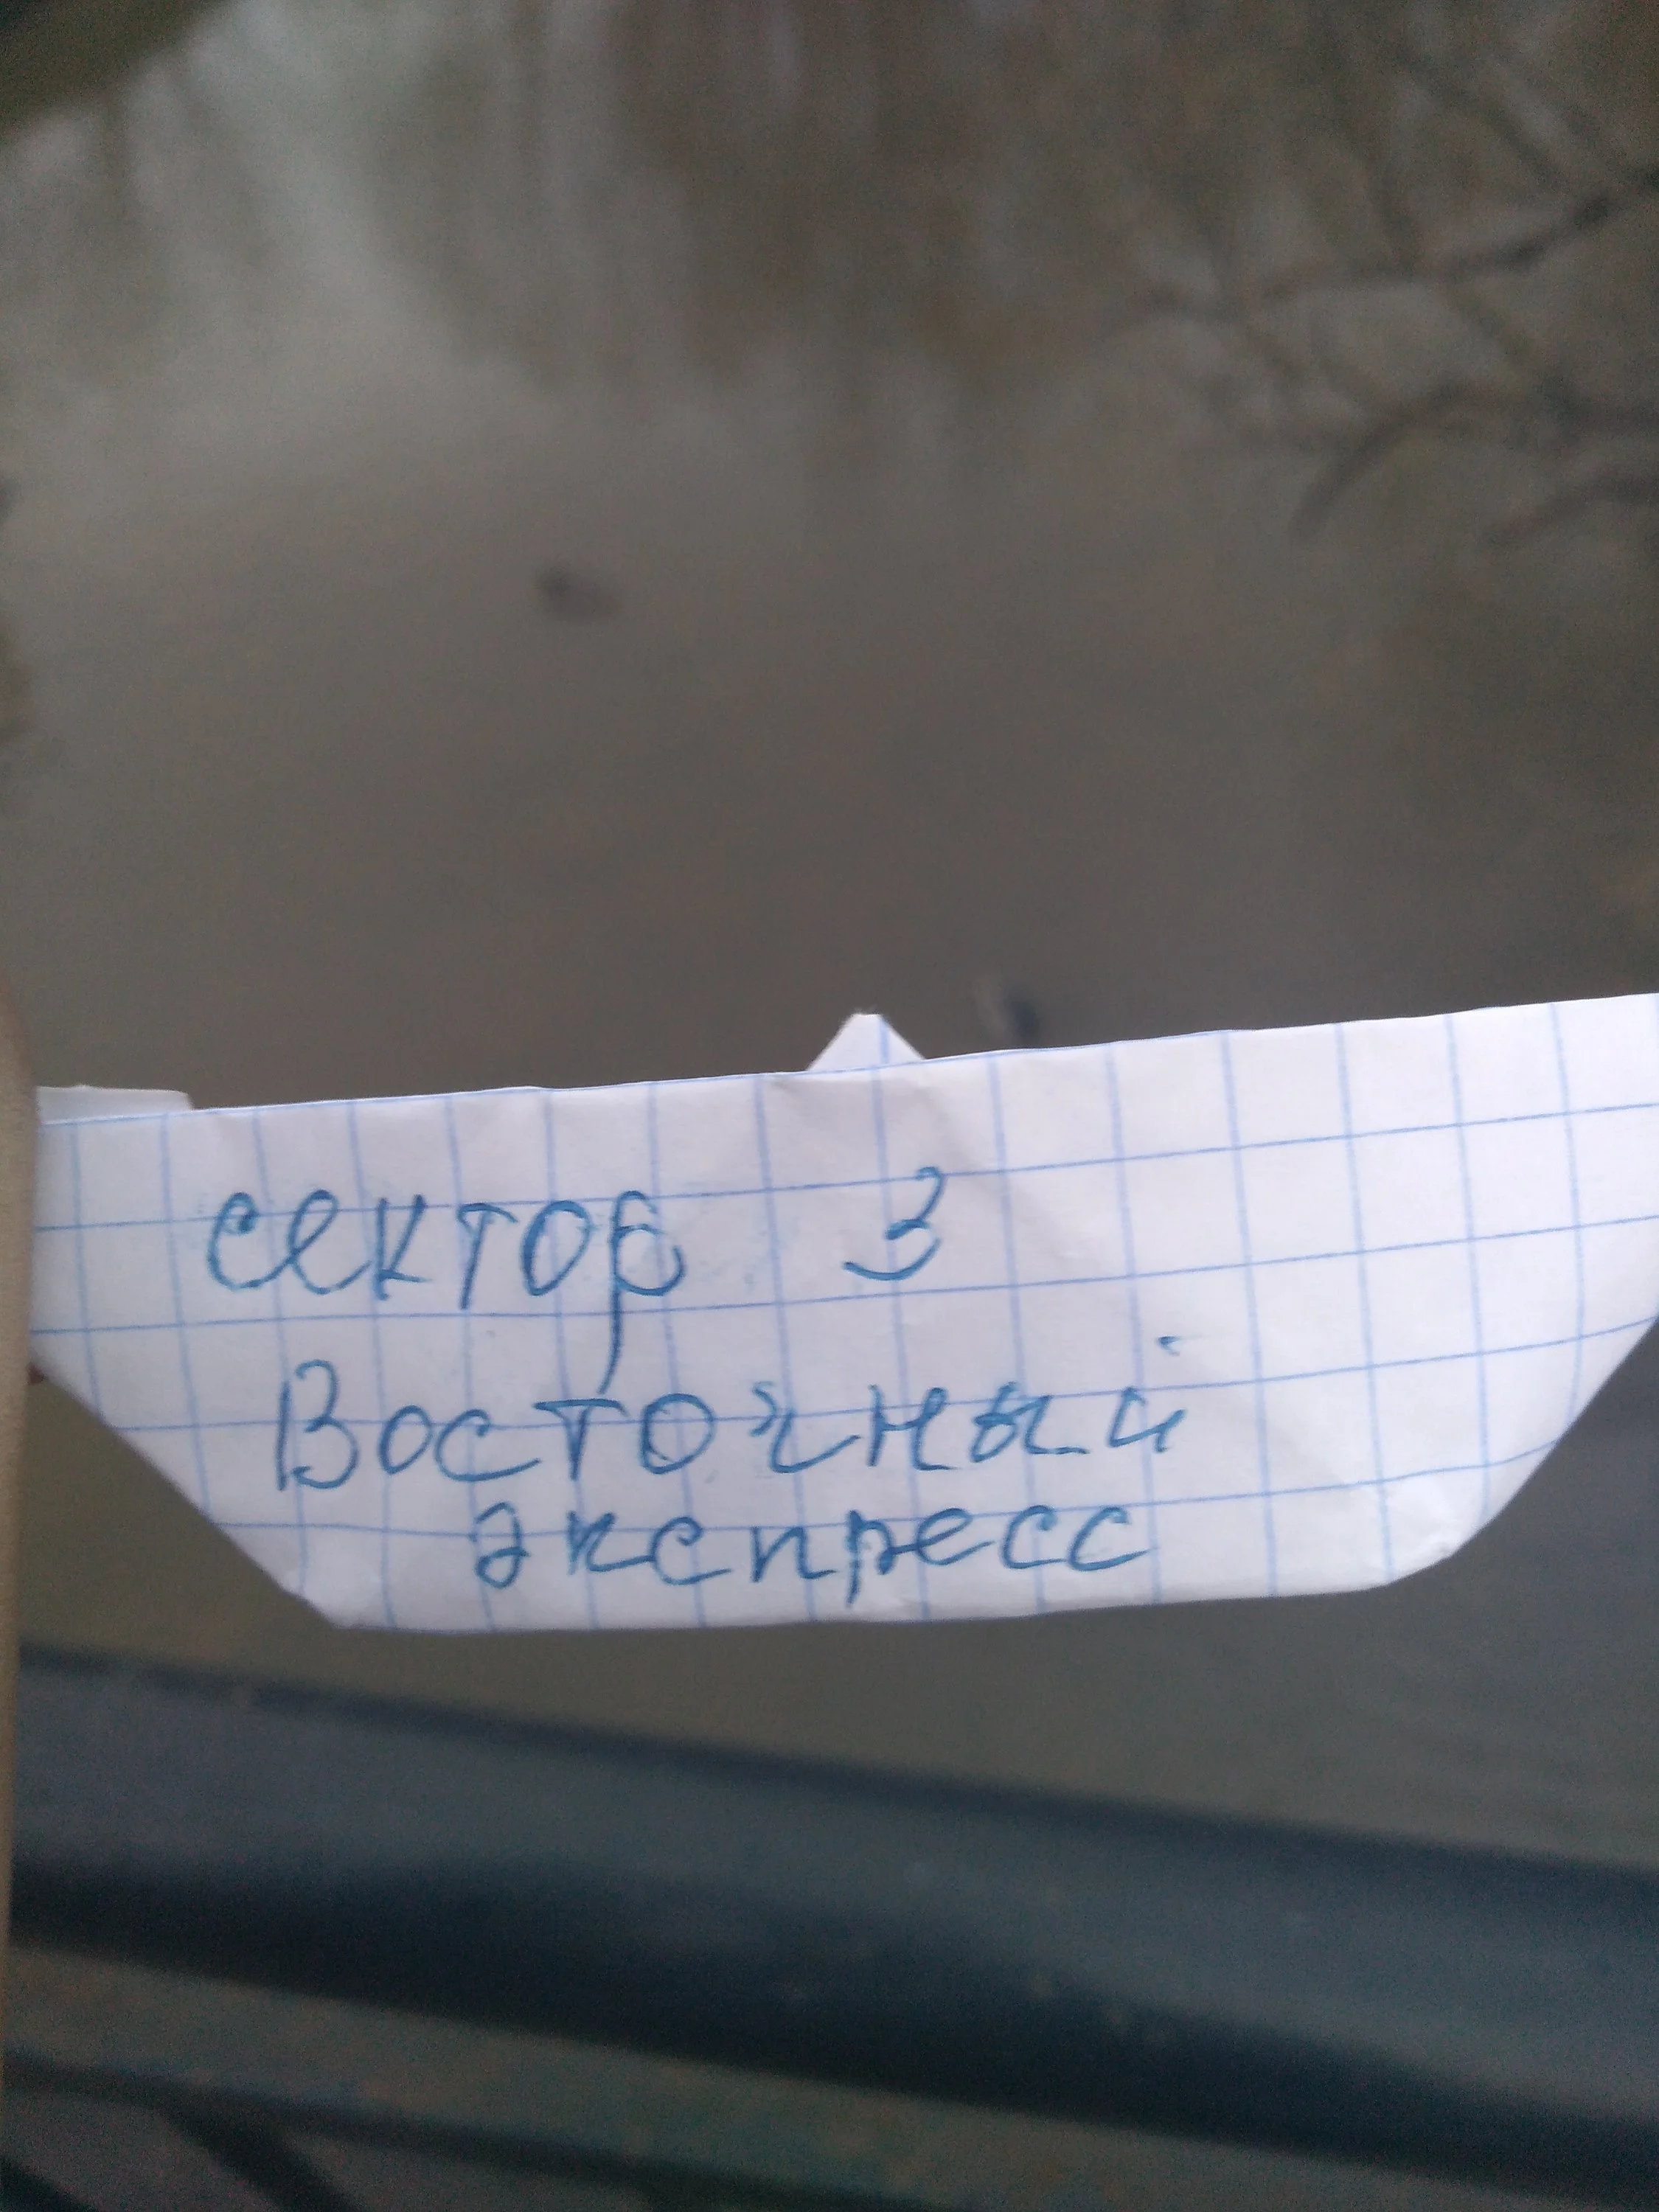 сектор 3
Восточный
экспресс